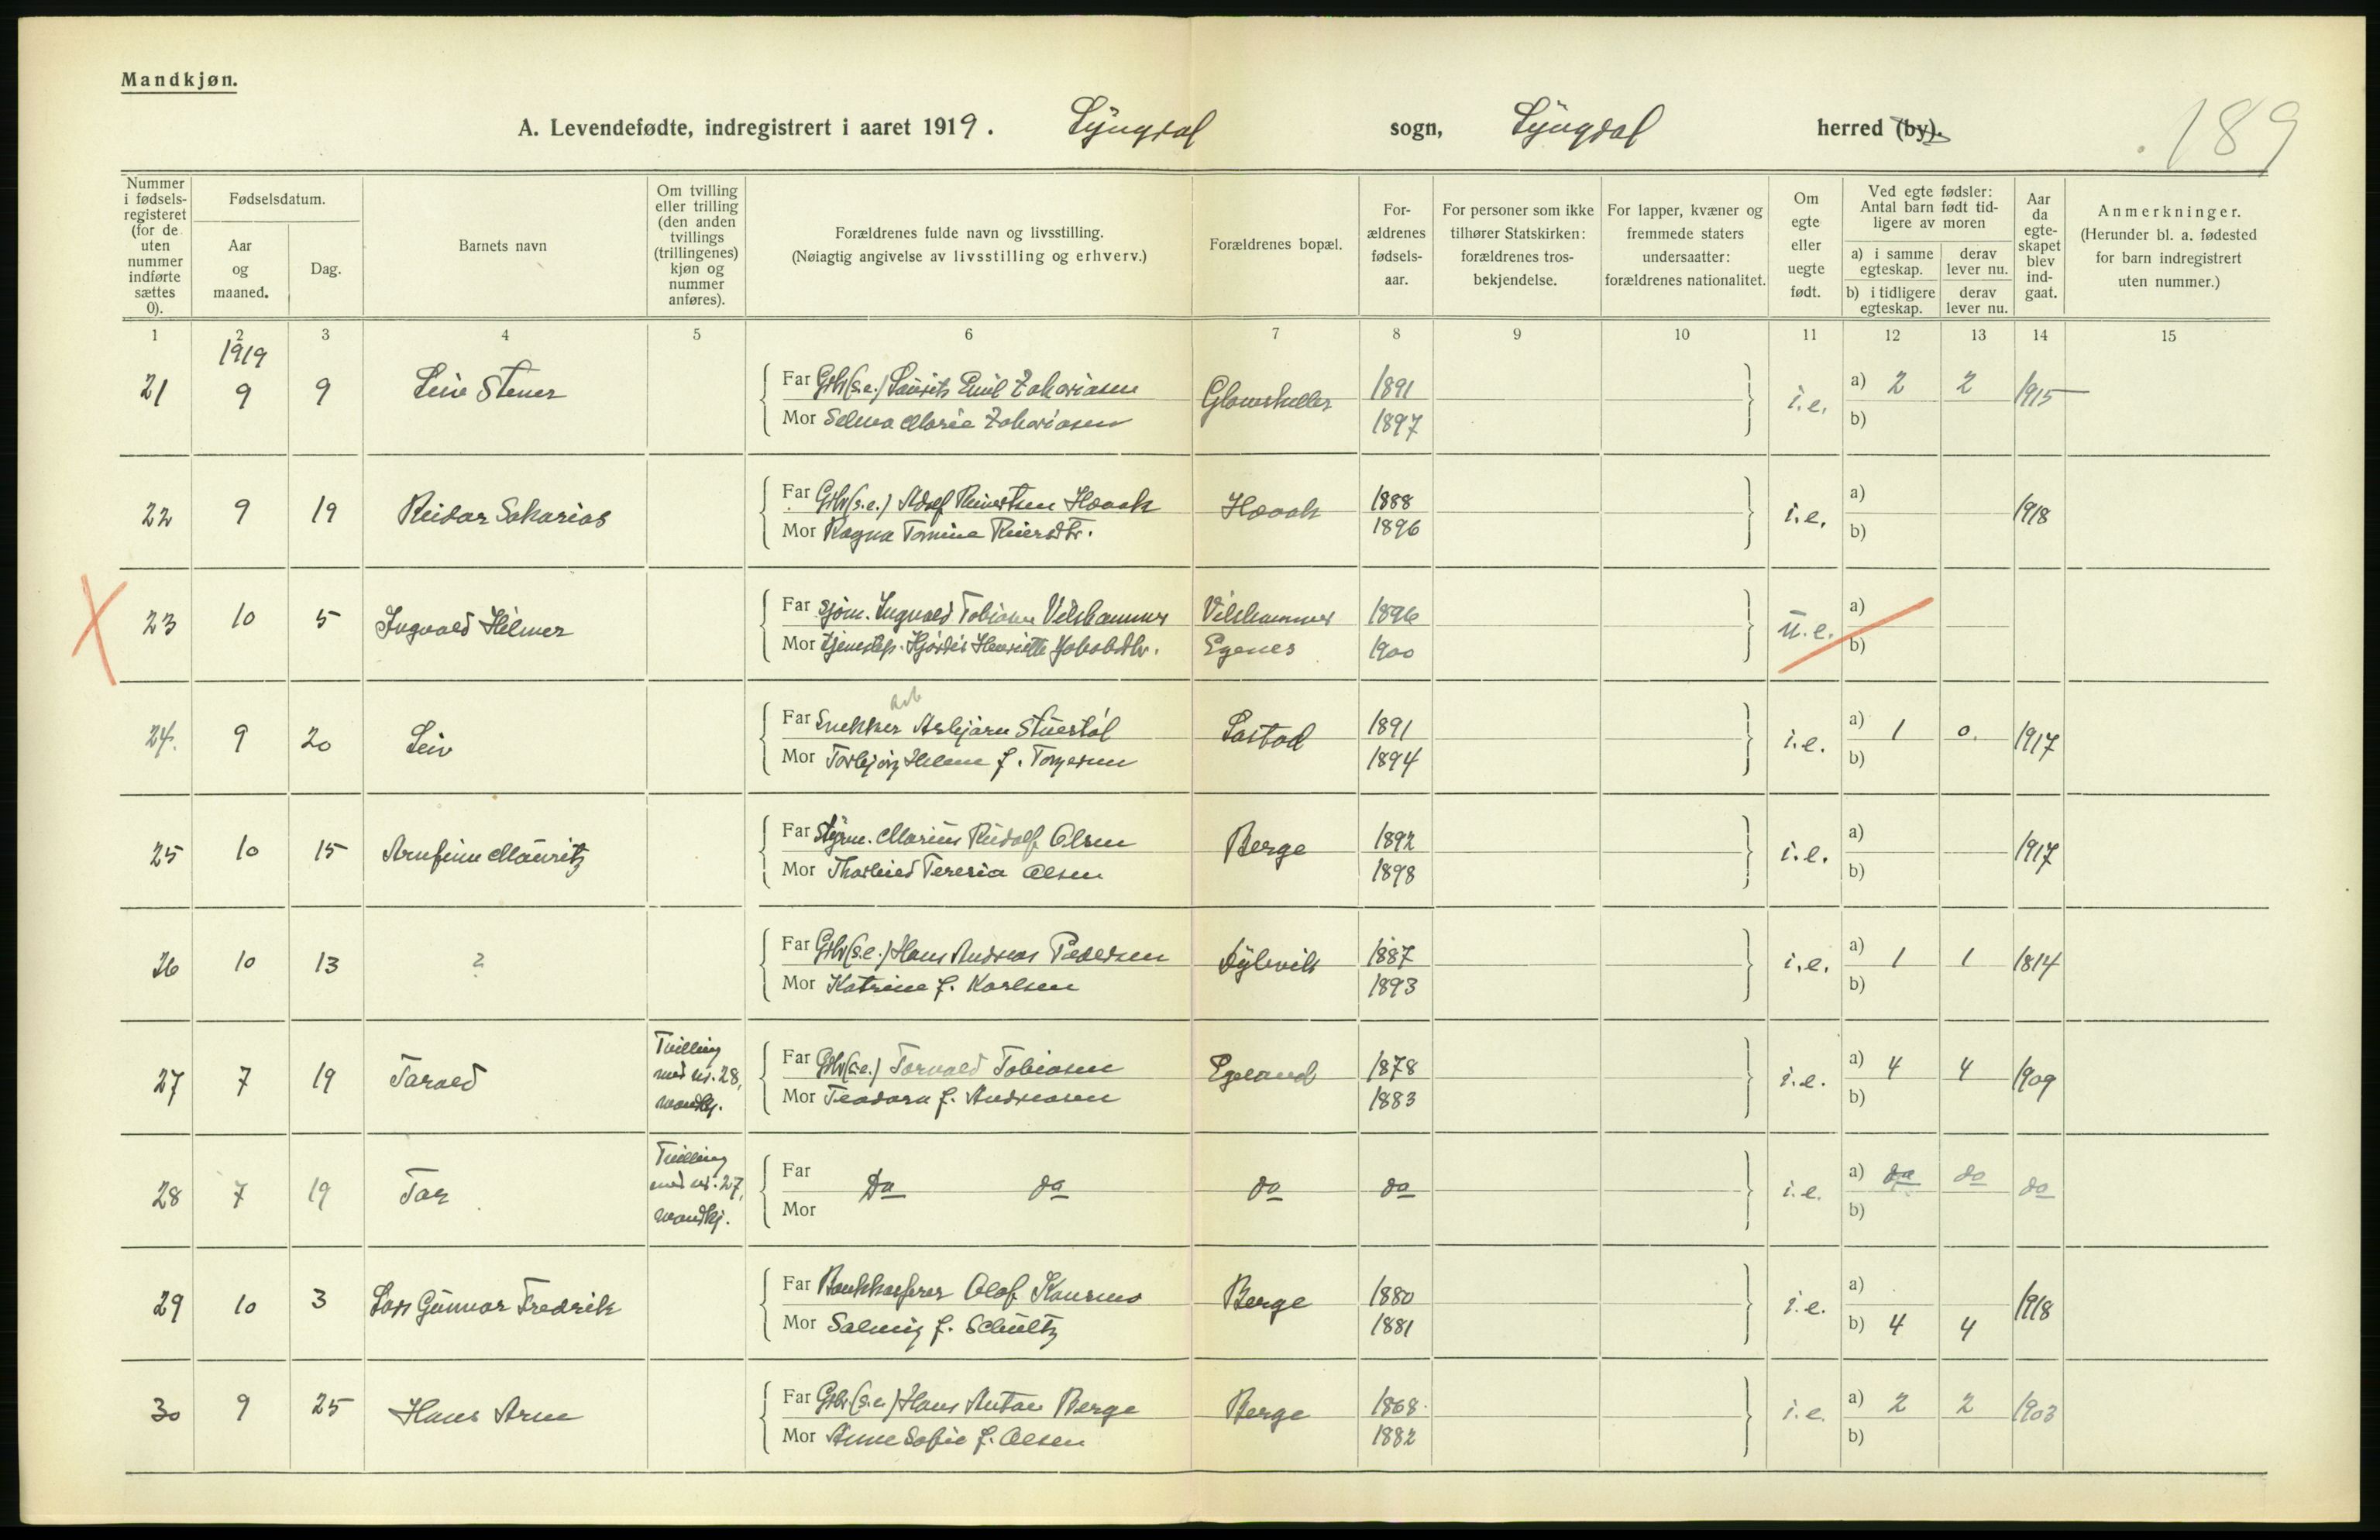 Mandkjøn.
A. Levendefødte, indregistrert i aaret 1919. Lyngdal sogn, Lyngdal herred (by).
189
Nummer i fødsels-registeret (for de uten nummer indførte sættes 0).
Fødselsdatum.
Aar og maaned.
Dag.
Barnets navn
Om tvilling eller trilling (den anden tvillings (trillingenes) kjøn og nummer anføres).
Forældrenes fulde navn og livsstilling.
(Nøiagtig angivelse av livsstilling og erhverv.)
Forældrenes bopæl.
For-ældrenes fødsels-aar.
For personer som ikke tilhører Statskirken: forældrenes tros-bekjendelse.
For lapper, kvæner og fremmede staters undersaatter: forældrenes nationalitet.
Om egte eller uegte født.
Ved egte fødsler: Antal barn født tid-ligere av moren
a) i samme egteskap.
derav lever nu.
b) i tidligere egteskap.
derav lever nu.
Aar da egte-skapet blev ind-gaat.
Anmerkninger.
(Herunder bl. a. fødested for barn indregistrert uten nummer.)
1 2 3 4 5 6 7 8 9 10 11 12 13 14 15
1919
21 9 9 Leiv Stener Far Grbr(s.e.) Laurits Emil Zakariasen 1891 i.e. a) 2 2 1915
Mor Selma Marie Zakariasen 1897 b)
22 9 19 Reidar Sakarias Far Grbr(s.e.) Adolf Reinertsen Haaak Haaak 1888 i.e. a) 1918
Mor Ragna Tomine 1896 b)
23 10 5 Ingvald Hilmer Far Sjøm. Ingvald Tobiasen 1896 u.e. a)
Mor Tjenestep. Hjørdis Henriette Egenes 1900 b)
Arb
24. 9 20 Leiv Far Snekker Asbjørn Stuestøl 1891 i.e. a) 1 0. 1917
Mor Torbjørg Helene f. Tomersen 1894 b)
25 10 15 Arnfinn Mauritz Far Styrm. Marius Rudolf Olsen Berge 1892 i.e. a) 1917
Mor Teresia Olsen 1898 b)
26 10 13 ? Far Grbr(s.e.) Hans Andreas Pedersen 1887 i.e. a) 1 1 1814
Mor Katrine f. Karlsen 1893 b)
27 7 19 Tarald Tvilling med nr. 28, mandkj. Far Grbr(s.e.) Torvald Tobiasen Egeland 1878 i.e. a) 4 4 1909
Mor Teodora f. Andreasen 1883 b)
28 7 19 Tor Tvilling med nr. 27, mandkj. Far Do do do do i.e. a) do do do
Mor b)
29 10 3 Lars Gunnar Fredrik Far Bankkasserer Olaf Berge 1880 i.e. a) 1918
Mor Solveig f. Schultz 1881 b) 4 4
30 9 25 Hans Arne Far Grbr.(s.e.) Hans Anton Berge Berge 1868 i.e. a) 2 2 1903
Mor Anne Sofie f. Olsen 1882 b)